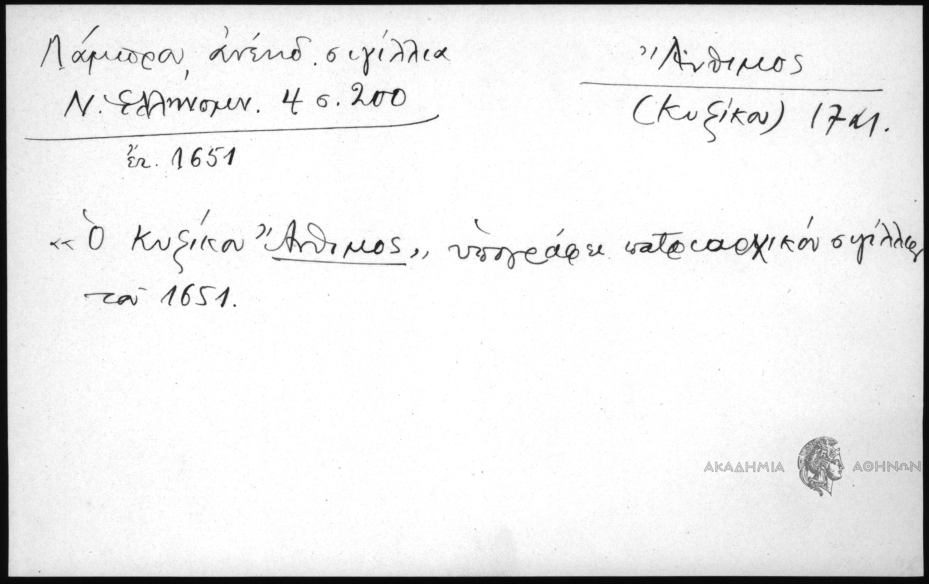 Λάμπρου, ἀνέκδ. σιγίλλια
Ν. Ἑλληνομν. 4 σ. 200
ἔτ. 1651
Ἄνθιμος
(Κυζίκου) 17 αι.
«Ὁ Κυζίκου Ἄνθιμος» ὑπογράφει πατριαρχικόν σιγίλλιον
τοῦ 1651.
ΑΚΑΔΗΜΙΑ ΑΘΗΝΩΝ